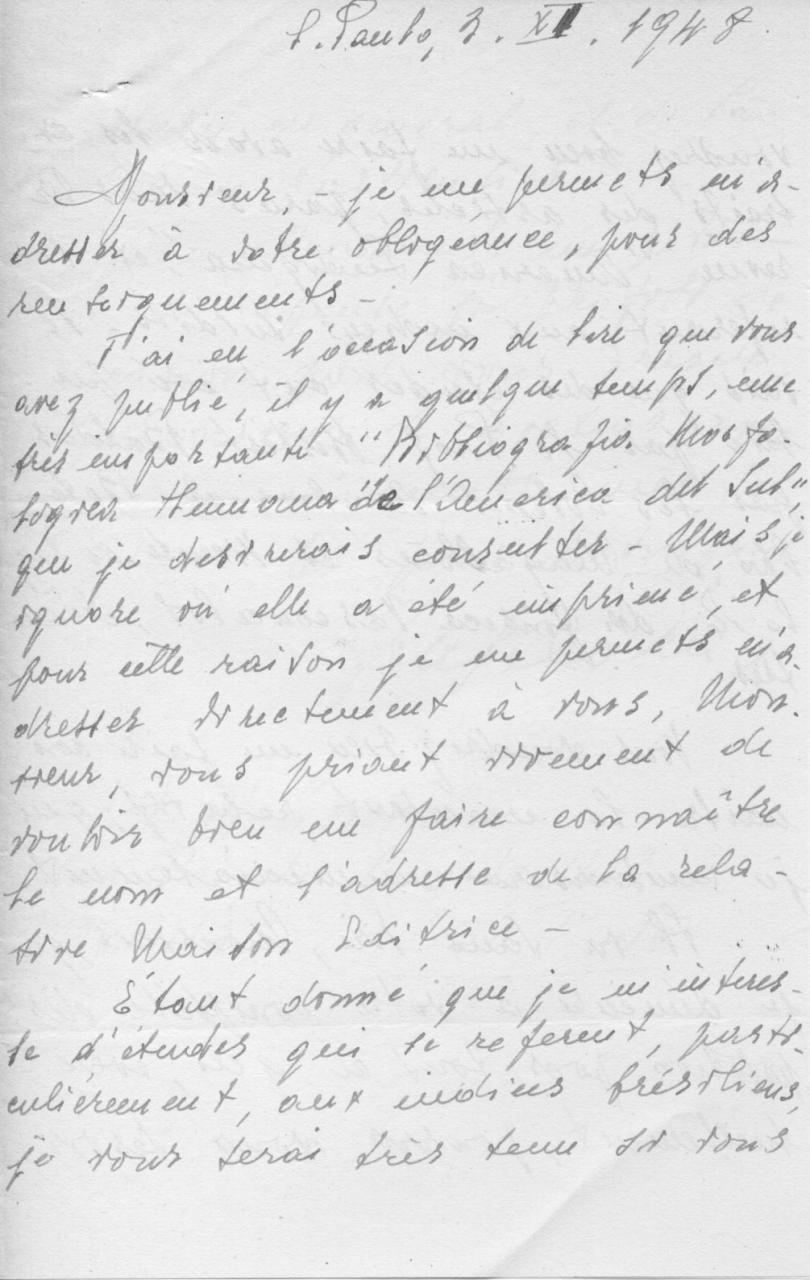 S. Paulo, 3. XII. 1948
Monsieur, – je me permets m'a-
dresser à votre obligeance, pour des
renseignements –
J'ai eu l'occasion de lire que vous
avez publié, il y a quelque temps, une
très importante "Bibliografia Morfo-
logica Humana de l'America del Sul",
que je desirerais consulter – Mais je
ignore où elle a été imprimé, et
pour cette raison je me permets m'a-
dresser directement à vous, Mon-
sieur, vous priant vivement de
vouloir bien me faire connaître
le nom et l'adresse de la rela-
tive Maison Editrice –
Étant donné que je m'intéres-
se d'études qui se referent, parti-
culièrement, aux indiens brésiliens,
je vous serai très tenu si vous